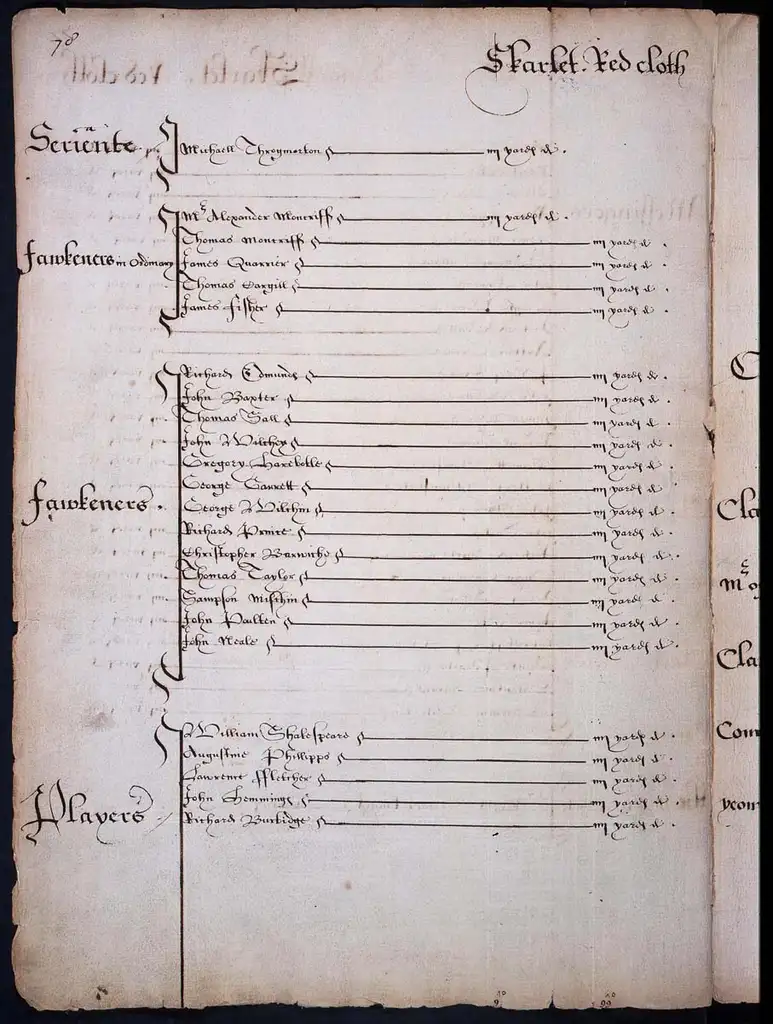 78
Skarlet. Red cloth
Michaell Throgmorton iiii yardes di.
Mr Alexander Montriff iiii yardes di.
Thomas Montriff iiii yardes di.
fawkeners in Ordinary James Quarrier iiii yardes di.
Thomas Cargill iiii yardes di.
James fisher iiii yardes di.
Richard Edmunds iiii yardes di.
John Baxter iiii yardes di.
Thomas Sall iiii yardes di.
John Wilchey iiii yardes di.
Gregory Harebotle iiii yardes di.
George Garrett iiii yardes di.
fawkeners. George Wilchin iiii yardes di.
Richard Prince iiii yardes di.
Christopher Barwiche iiii yardes di.
Thomas Taylor iiii yardes di.
Sampson Mischin iiii yardes di.
John iiii yardes di.
John Neale iiii yardes di.
William Shakespeare iiii yardes di.
Augustine Phillipps iiii yardes di.
Lawrence ffletcher iiii yardes di.
John Hemminges iiii yardes di.
Players Richard Burbidge iiii yardes di.